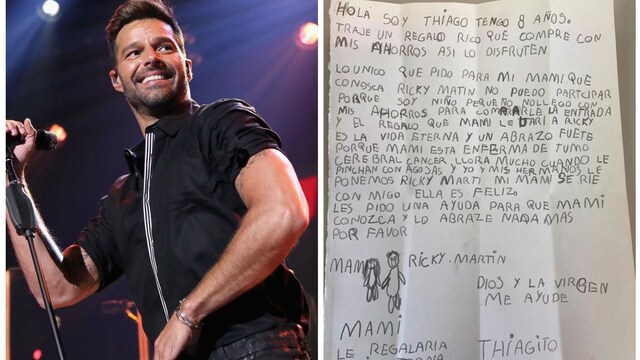 HOLA SOY THIAGO TENGO 8 AÑOS.
TRAJE UN REGALO RICO QUE COMPRE CON
MIS AHORROS ASI LO DISFRUTEN
LO UNICO QUE PIDO PARA MI MAMI QUE
CONOSCA RICKY MATIN NO PUEDO PARTICIPAR
PORQUE SOY NIÑO PEQUEÑO NOLLEGO CON
MIS AHORROS PARA COMPRARLE LA ENTRADA
Y EL REGALO QUE MAMI LE DARIA A RICKY
ES LA VIDA ETERNA Y UN ABRAZO FUETE
PORQUE MAMI ESTA ENFERMA DE TUMO
CEREBRAL CANCER LLORA MUCHO CUANDO LE
PINCHAN CON AGOJAS Y YO Y MIS HERMANOS LE
PONEMOS RICKY MARTI MI MAMI SE RIE
CON MIGO ELLA ES FELIZ
LES PIDO UNA AYUDA PARA QUE MAMI
CONOZCA Y LO ABRAZE NADA MAS
POR FAVOR
MAMI RICKY. MARTIN
DIOS Y LA VIRGEN
ME AYUDE
MAMI
LE REGALARIA THIAGITO